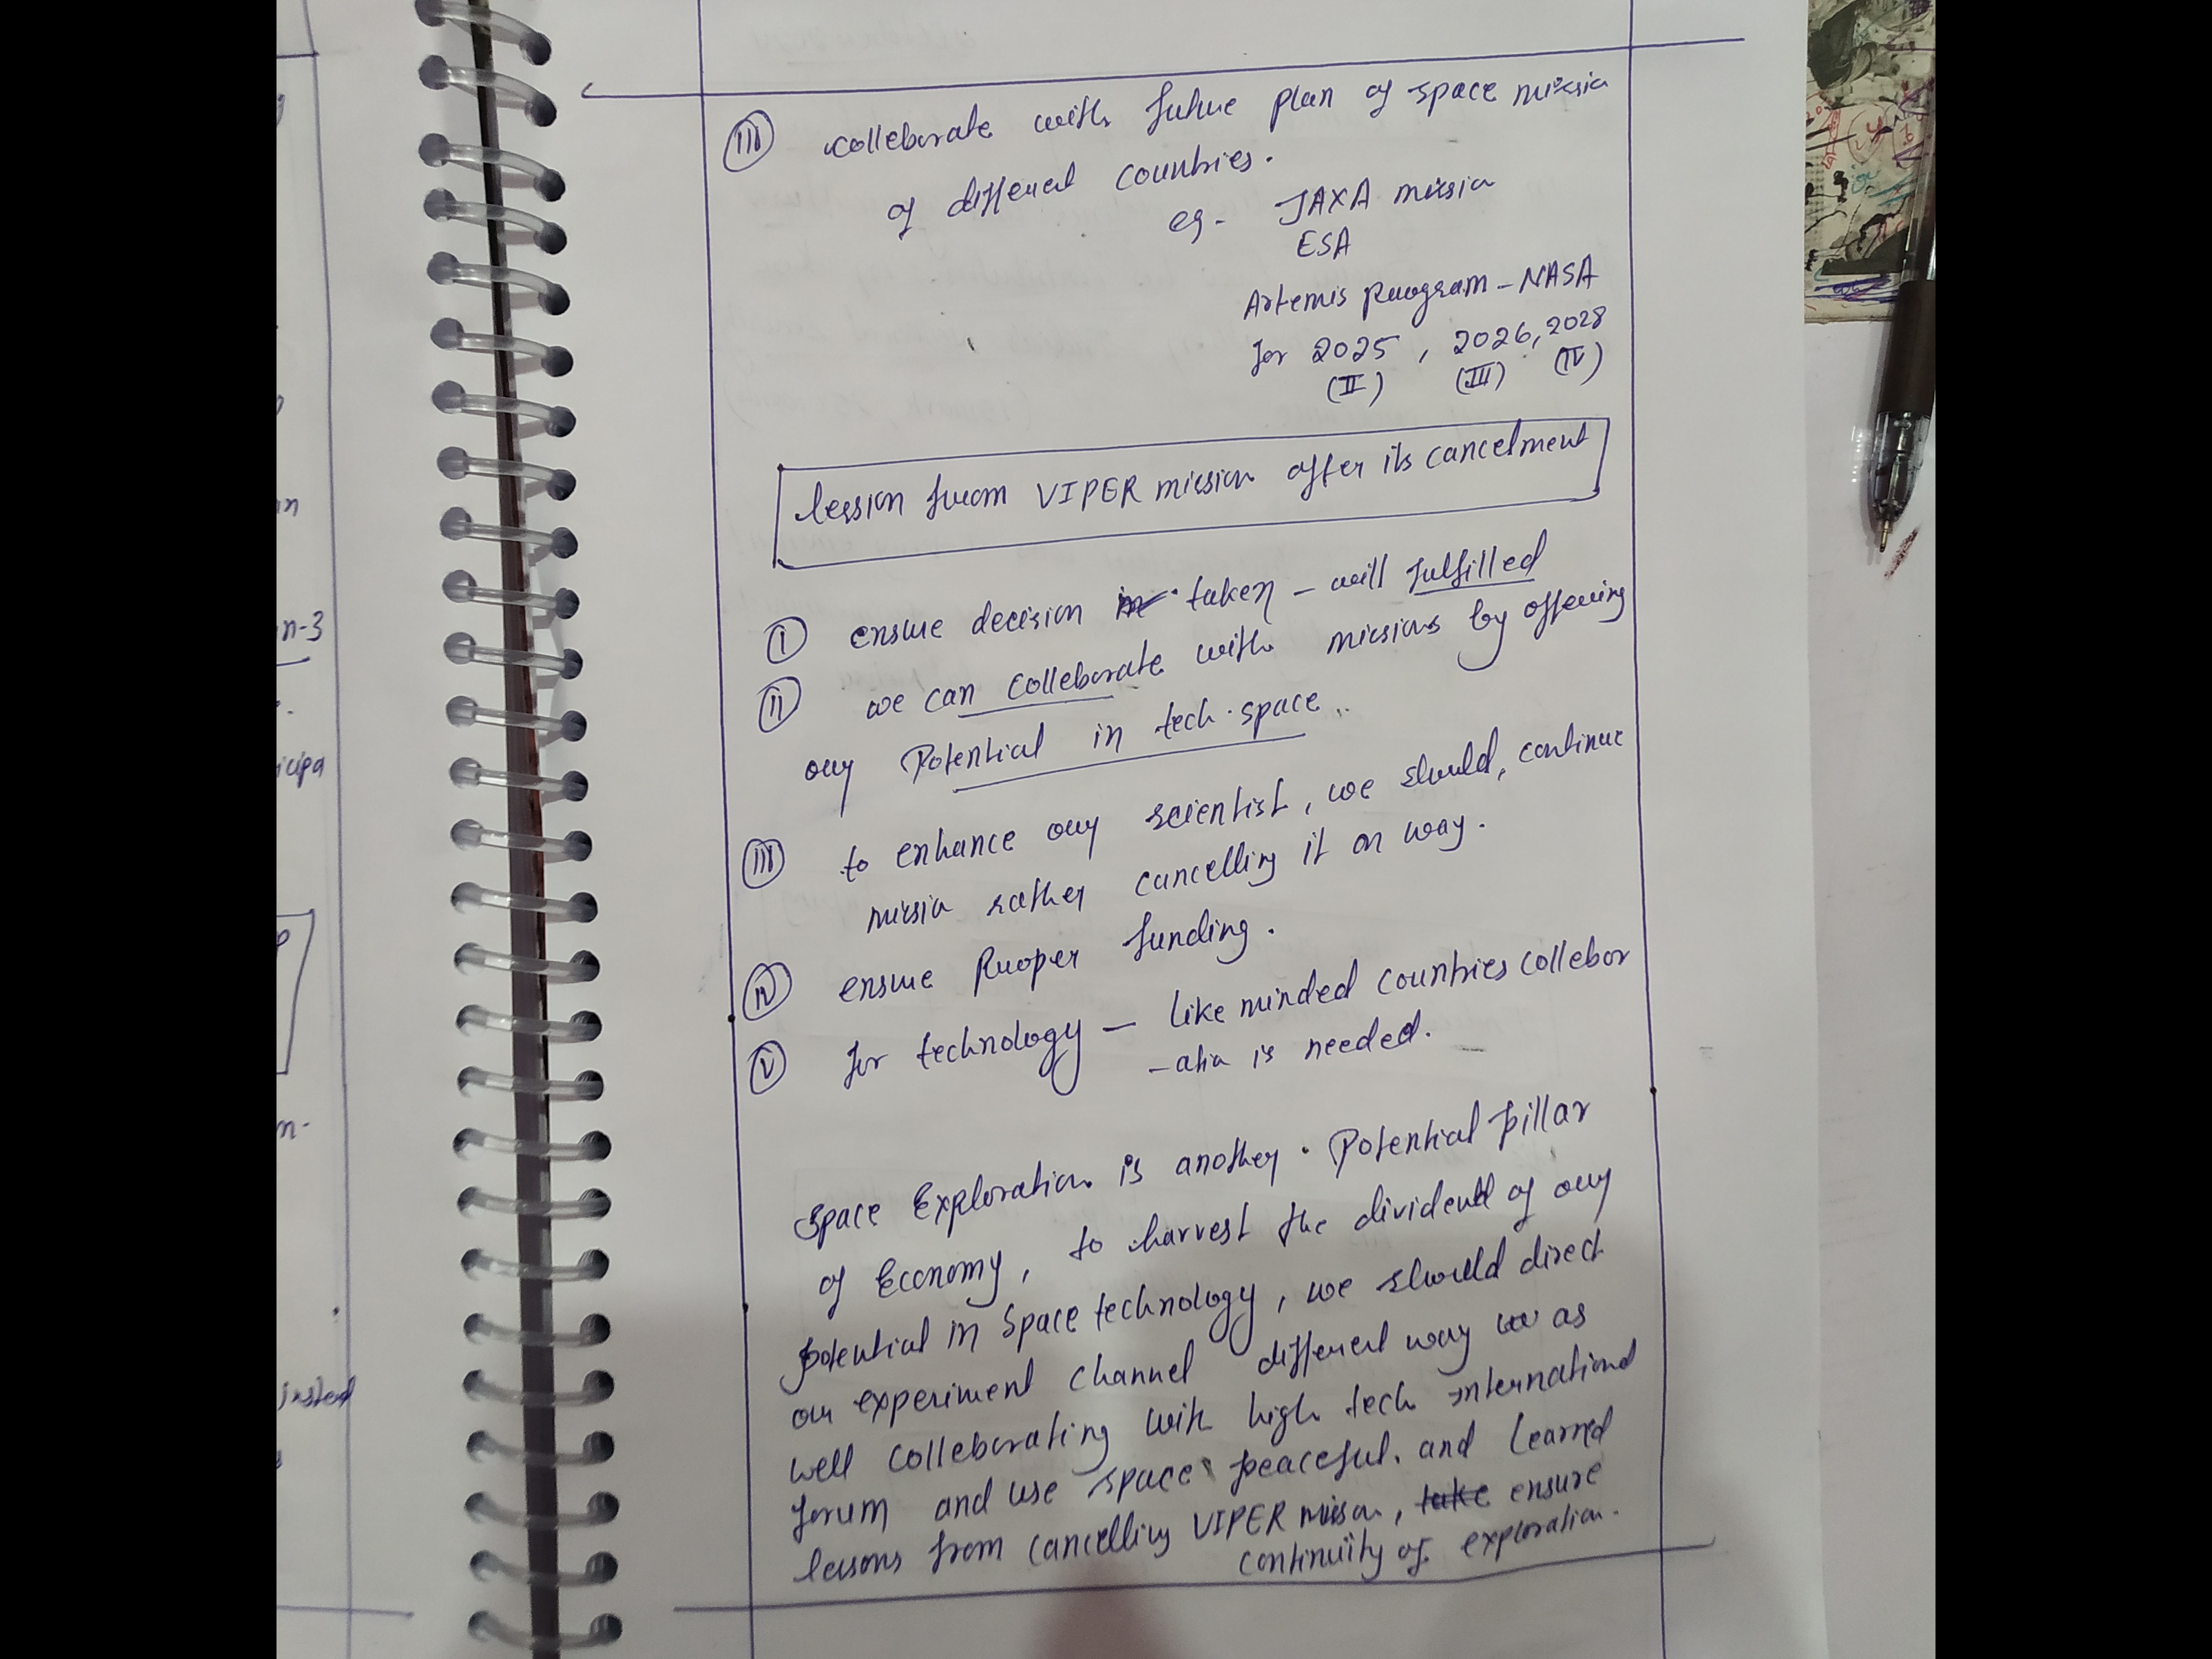 (III) colleborate with future plan of space missia
of different countries.
eg- JAXA missia
ESA
Artemis Program - NASA
for 2025, 2026, 2028
(II) (III) (IV)
lession from VIPER mission after its cancelment
(I) ensure decision taken - will fulfilled
(II) we can colleborate with missions by offering
our Potential in tech. space.
(III) to enhance our scientist, we should, continue
missia rather cancelling it on way.
(IV) ensure Proper funding.
(V) for technology - like minded countries collebor
-atia is needed.
Space Exploration is another Potential pillar
of Economy, to harvest the dividend of our
potential in space technology, we should direct
our experiment channel different way as
well colleborating with high tech international
forum and use space peaceful. and learned
lessons from cancelling VIPER misson, take ensure
continuity of exploration.
n
n-3
icipa
n-
insted